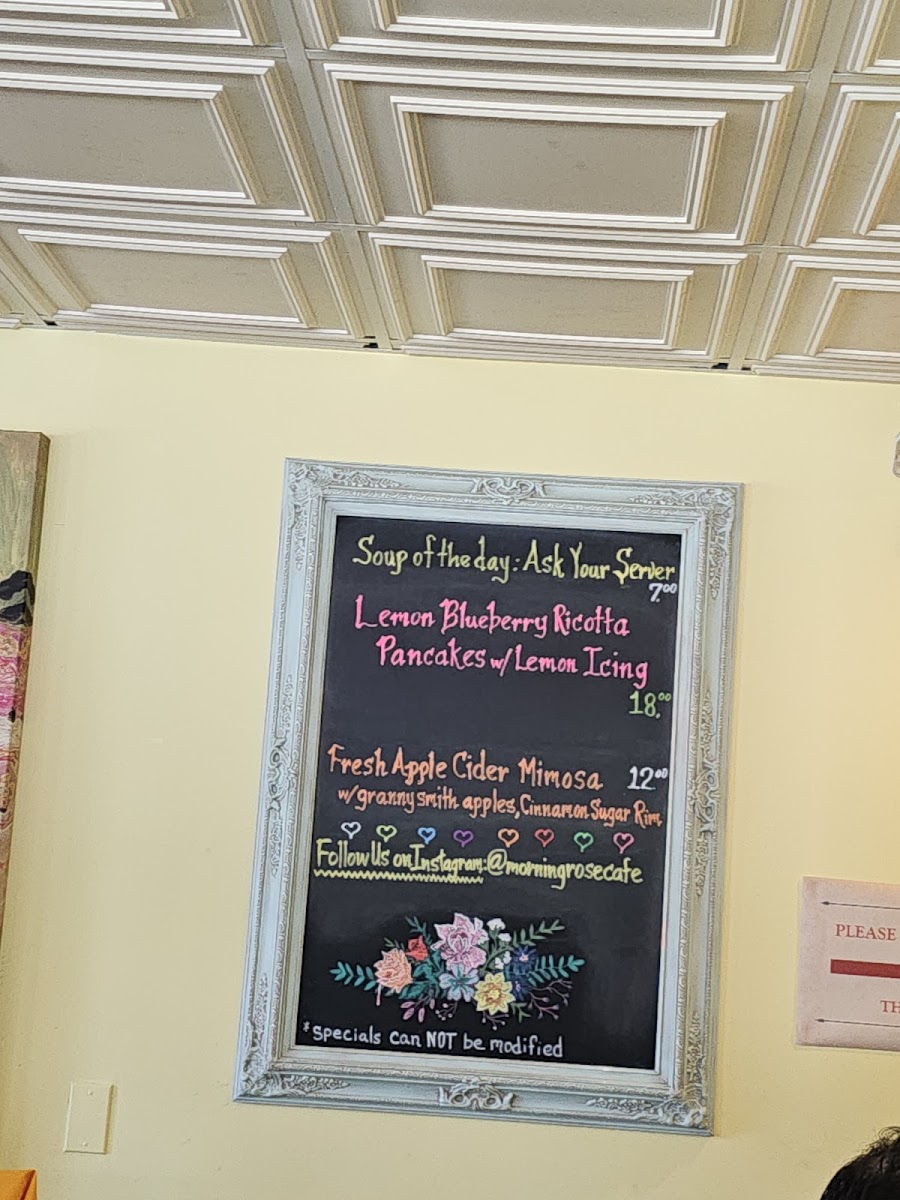 Soup of the day: Ask Your Server
7.00
Lemon Blueberry Ricotta
Pancakes w/ Lemon Icing
18.00
Fresh Apple Cider Mimosa 12.00
w/ granny smith apples, Cinnamon Sugar Rim
Follow Us on Instagram: @morningrosecafe
*Specials can NOT be modified
PLEASE
TH